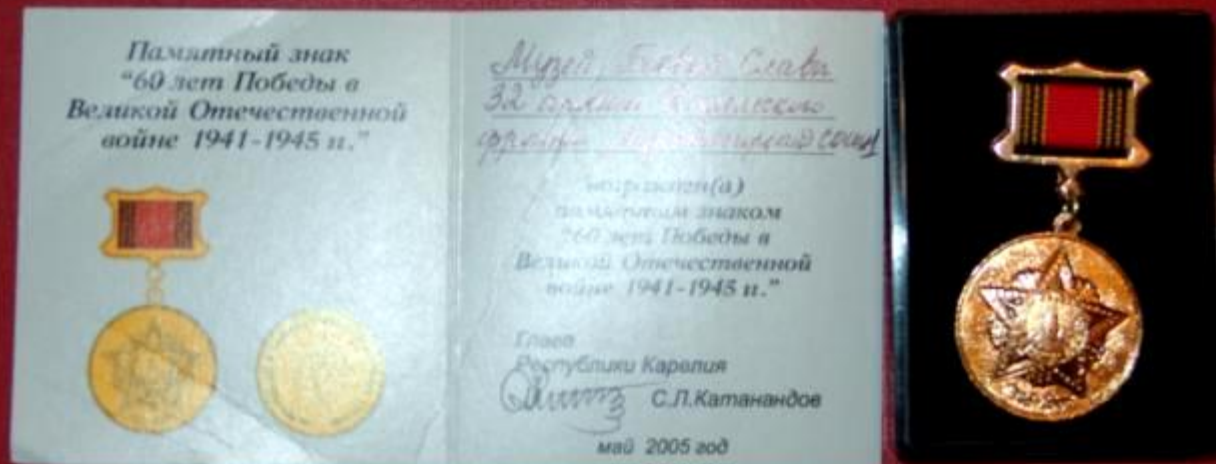 Памятный знак
“60 лет Победы в
Великой Отечественной
войне 1941-1945 гг.”
Музей Боевой Славы
32 армии Карельского
фронта
награжден(а)
памятным знаком
“60 лет Победы в
Великой Отечественной
войне 1941-1945 гг.”
Глава
Республики Карелия
С.Л.Катанандов
май 2005 год